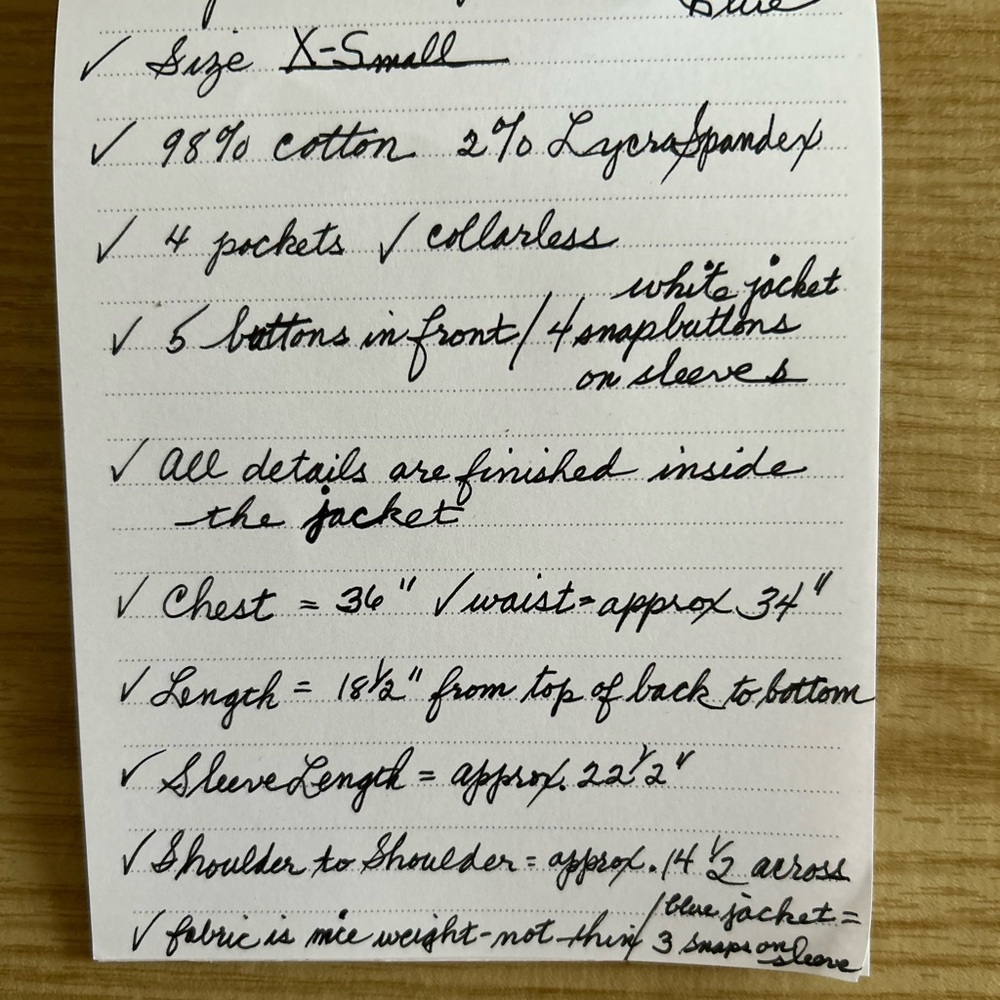 Blue
✓ Size X-Small
✓ 98% cotton 2% Lycra/Spandex
✓ 4 pockets ✓ collarless
white jacket
✓ 5 buttons in front / 4 snapbuttons
on sleeves
✓ All details are finished inside
the jacket
✓ Chest = 36" ✓ waist = approx 34"
✓ Length = 18 1/2" from top of back to bottom
✓ Sleeve Length = approx. 22 1/2"
✓ Shoulder to Shoulder = approx. 14 1/2 across
✓ fabric is nice weight - not thin / blue jacket =
3 snaps on
sleeve